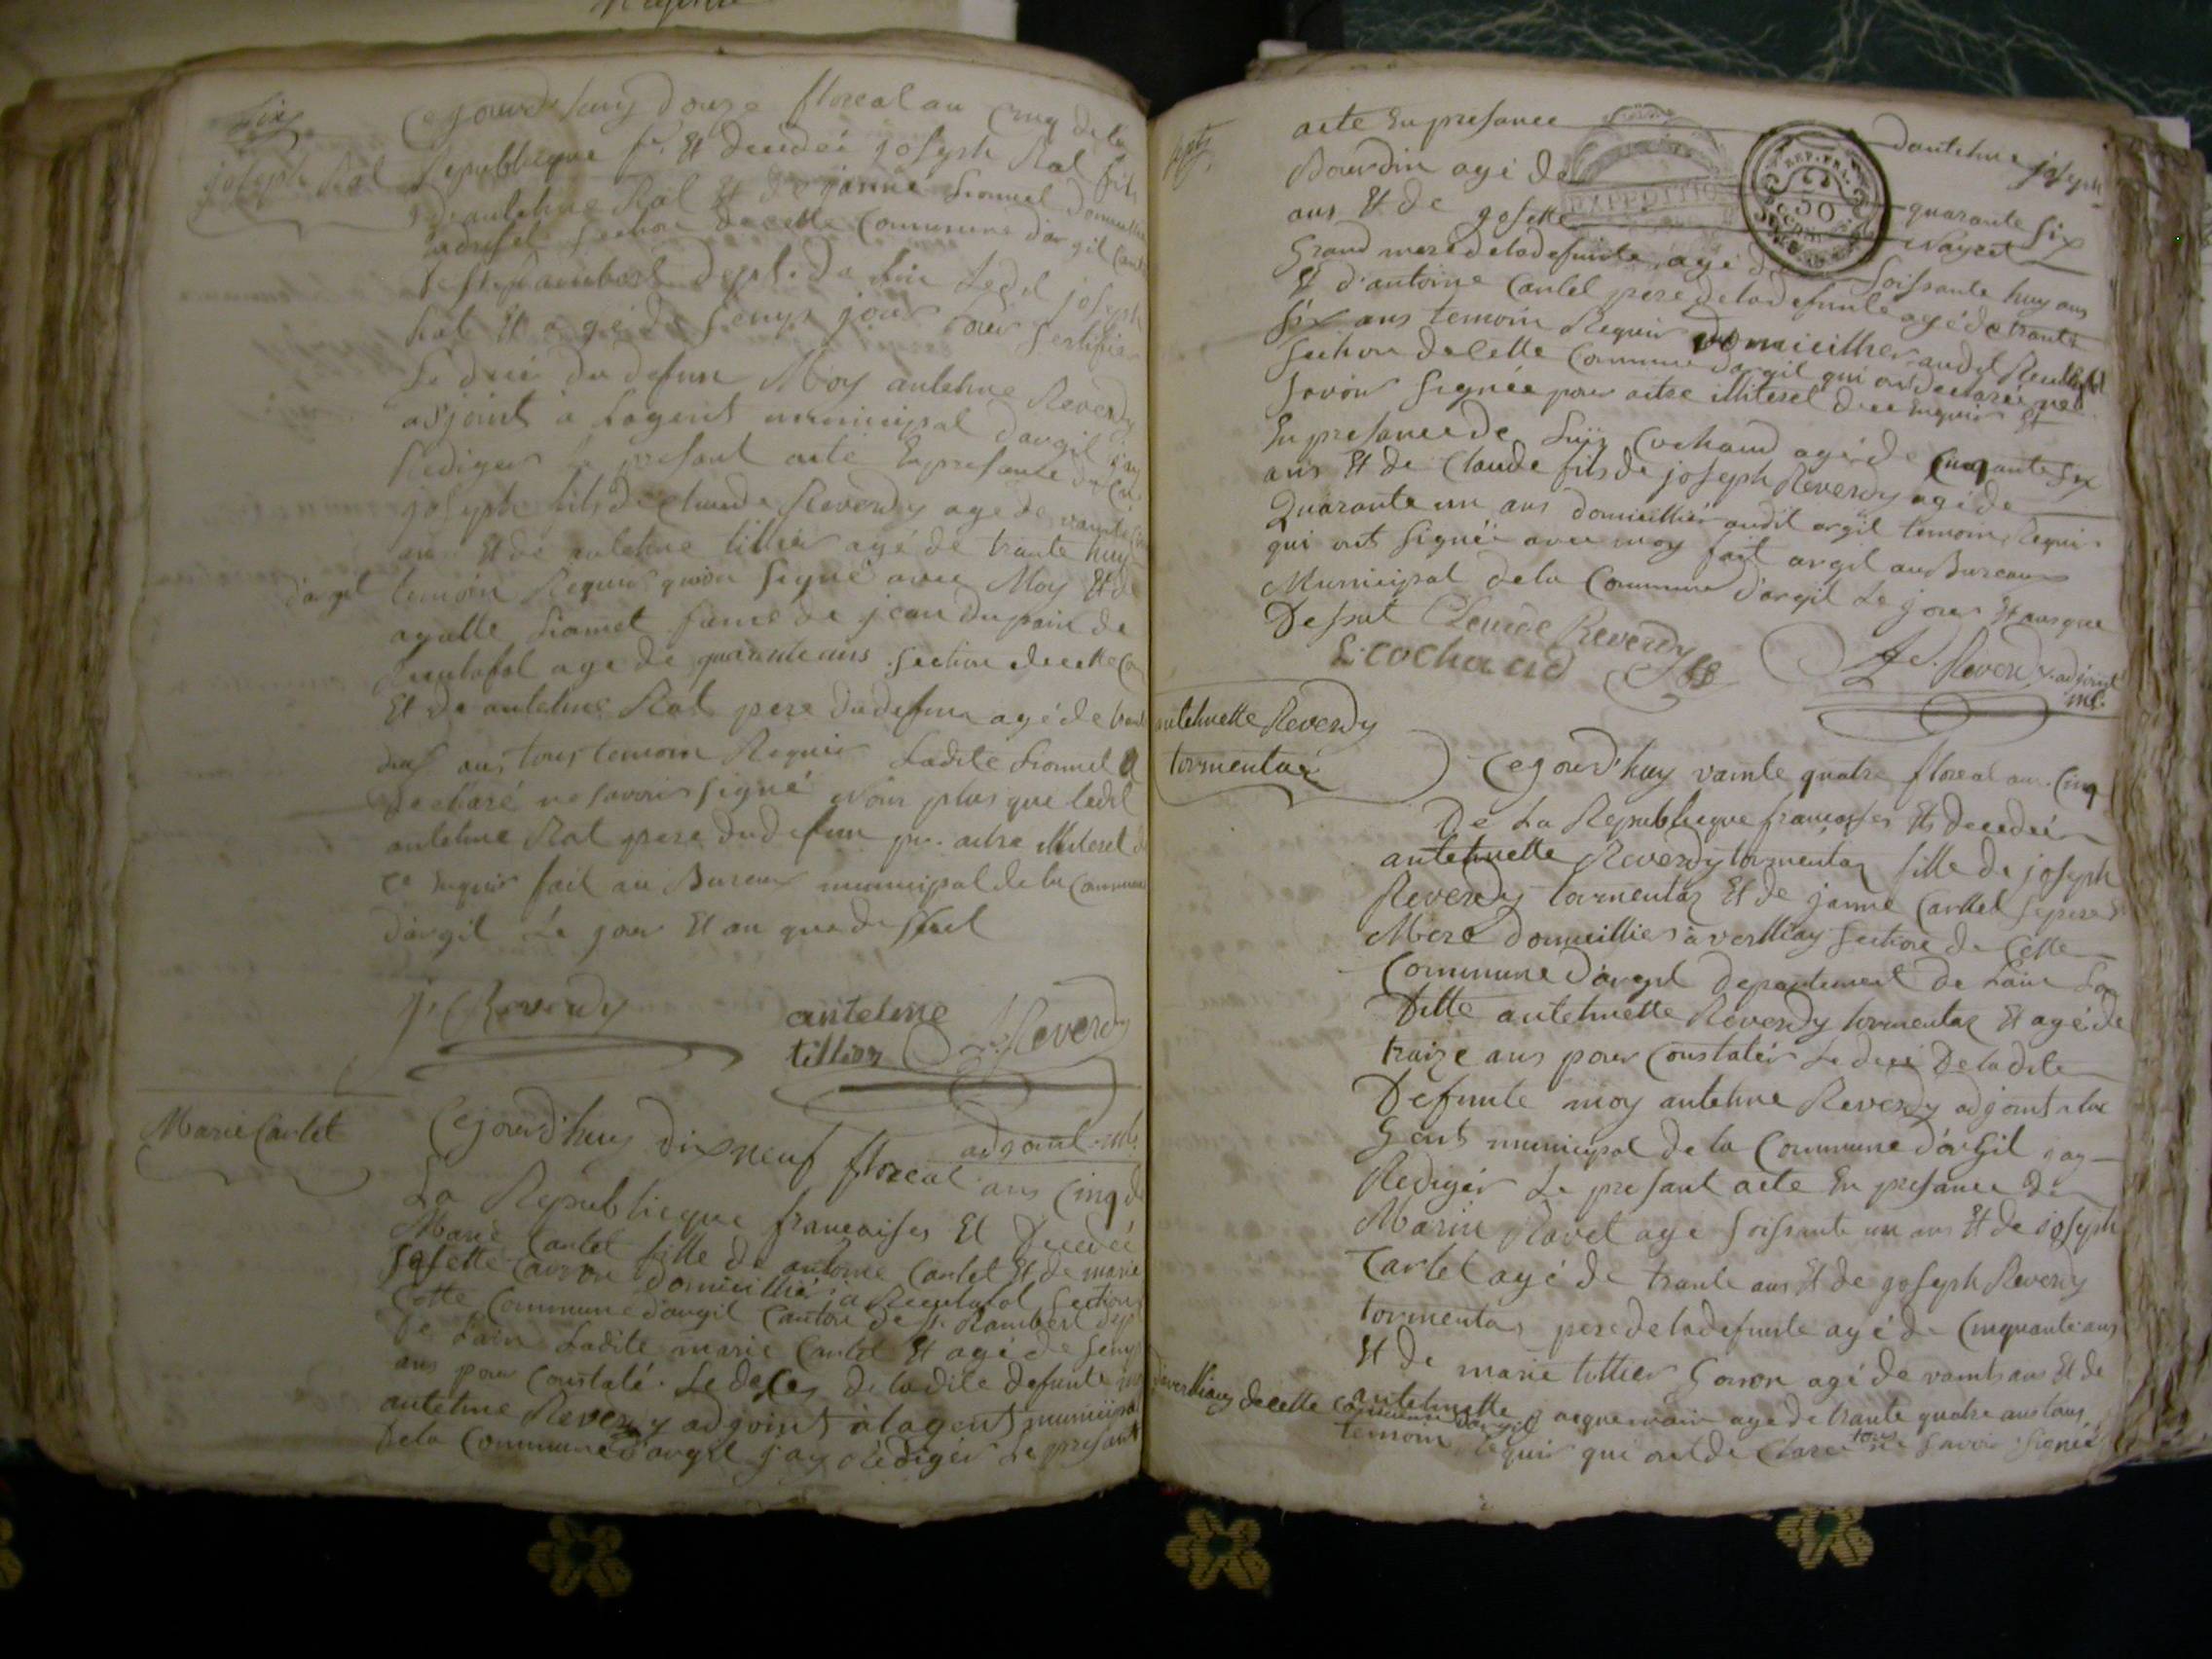 Six
joseph Rat
Cejourd'huy douze floreal an Cinq de la
Republicque fr. Et deudéé joseph Rat fils
d'antelme Rat Et de janne
section de cette Commune d'argil
Rambert dept. de Lin Ledit joseph
Rat Et agé de jour pour sertifier
Le ducé du defun Moy antelme Reverdy
adjoint a Lagent municipal d'argil jay
Rediger Le presant acte En presance de
joseph fils de Claude Reverdy age de
ans Et de antelme tillier agé de trante huy
d'argil
temoin Requis qui on signé avec Moy Et de
agatte famme de jean dupain de
age de quarante ans section de cette
Et de antelme Rat pere du defun agé de
ans tous temoin Requis Ladite
declaré ne savoir signé Non plus que ledit
antelme Rat pere du defun pr. aitre illiteret
ce Enquis fait au Bureaux municipal de la Commune
d'argil Le jour Et an que dessut
j. Reverdy
antelme
tillier
A. Reverdy
adjoint m.
Marie Cartet
Cejourd'huy dix neuf floreal ans Cinq de
La Republicque francaises Et Decedéé
Marie Cartet fille de antoine Cartet Et de marie
josette domicillié a section
Cette Commune d'argil Canton de St. Rambert dept
De Lain Ladite marie Cartet Et agé de
ans pour Constaté Le deces de ladite defunte moy
antelme Reverdy adjoint a lagent municipal
Dela Commune d'argil jay Rediger Le presant
Sept
acte En presance d'antelme joseph
Bourdin agé de quarante six
ans Et de josette
EXPEDITION
REP. FRA.
50
Grand mere de la defunte agé de soissante huy ans
Et d'antoine Cartet pere de la defunte agé de trante
six ans temoin Requis domicillier audit
section de Cette Commune d'argil qui ont declaréé ne
savoir signée pour aitre illiteret de ce Enquis Et
En presance de Cochand agé de Cinquante six
ans Et de Claude fils de joseph Reverdy agé de
Quarante un ans domicillier audit argil temoin Requis
qui ont signéé avec moy fait argil au Bureaux
Municipal dela Commune d'argil Le jour Et an que
Dessut Claude Reverdy
L. cochand
A. Reverdy adjoint
m.
antelmette Reverdy
tormentaz
Cejourd'huy vainte quatre floreal an Cinq
De La Republicque francaises Et decedéé
antelmette Reverdy tormentaz fille de joseph
Reverdy tormentaz Et de janne Cartet se pere Et
Mere domicillier a verlliay section de Cette
Commune d'argil departement de Lain La
Ditte antelmette Reverdy tormentaz Et agé de
traize ans pour Constatér Le decé De ladite
Defunte moy antelme Reverdy adjoint a la
Gent municipal de la Commune d'argil jay
Redigér Le presant acte En presance de
Marin Ravet age soissante un ans Et de joseph
Cartet agé de trante ans Et de joseph Reverdy
tormentaz pere de la defunte agé de Cinquante ans
Et de marie tillier agé de vaint ans Et de
antelmette age de trante quatre ans tous
verlliay de cette Commune d'argil
temoin Requis qui ont declaré tous ne savoir signéé